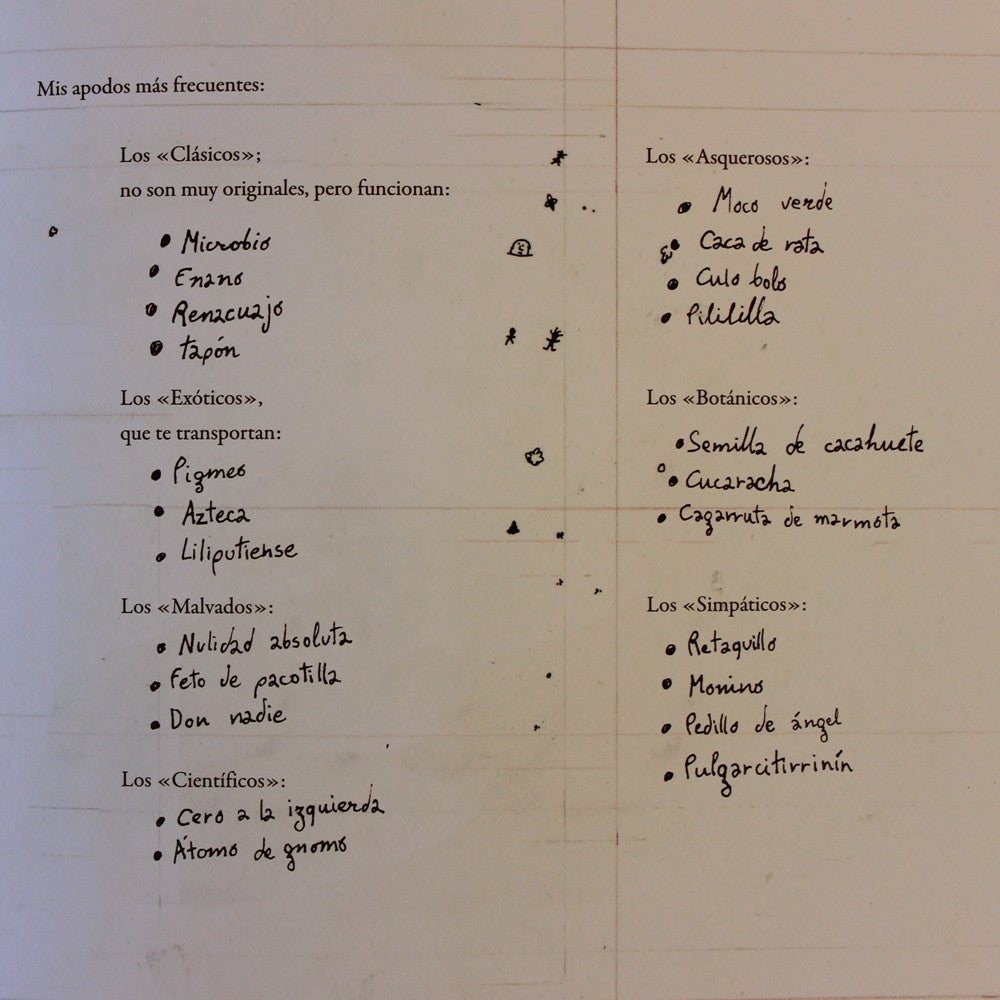 Mis apodos más frecuentes:
Los «Clásicos»;
no son muy originales, pero funcionan:
• Microbio
• Enano
• Renacuajo
• Tapón
Los «Exóticos»,
que te transportan:
• Pigmeo
• Azteca
• Liliputiense
Los «Malvados»:
• Nulidad absoluta
• Feto de pacotilla
• Don nadie
Los «Científicos»:
• Cero a la izquierda
• Átomo de gnomo
Los «Asquerosos»:
• Moco verde
• Caca de rata
• Culo bolo
• Pilililla
Los «Botánicos»:
• Semilla de cacahuete
• Cucaracha
• Cagarruta de marmota
Los «Simpáticos»:
• Retaquillo
• Monino
• Pedillo de ángel
• Pulgarcitirrinín